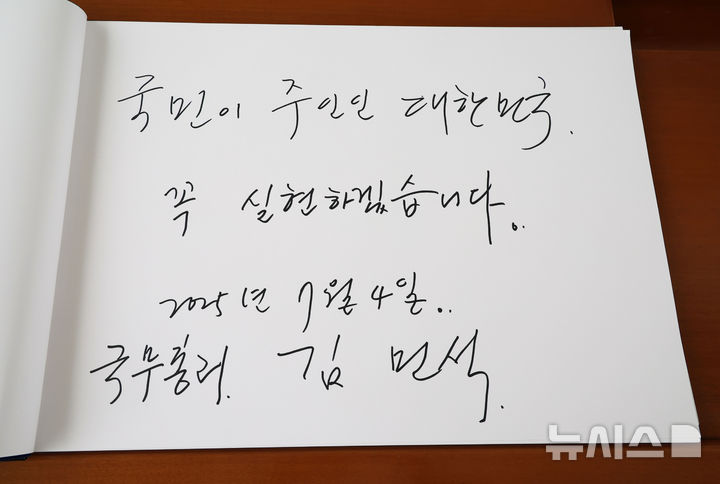 국민이 주인인 대한민국.
꼭 실현하겠습니다.
2025년 7월 4일..
국무총리. 김 민석.
뉴시스